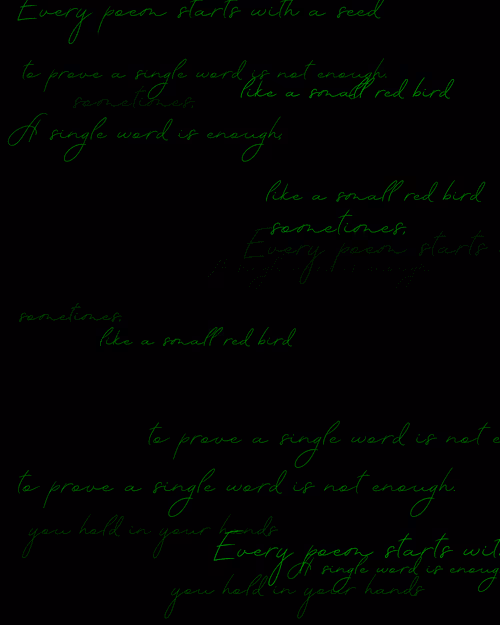 Every poem starts with a seed
to prove a single word is not enough.
like a small red bird
sometimes.
A single word is enough,
like a small red bird
sometimes.
Every poem starts
sometimes.
like a small red bird
to prove a single word is not e
to prove a single word is not enough.
you hold in your hands
Every poem starts wit
A single word is enoug
you hold in your hands